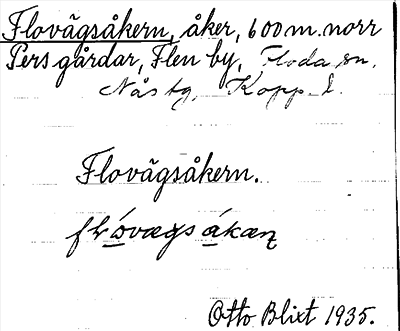 Flovägsåkern, åker, 600 m. norr
Pers gårdar, Flen by, Floda sn,
Nås tg, Kopp. l.
Flovägsåkern.
Otto Blixt 1935.